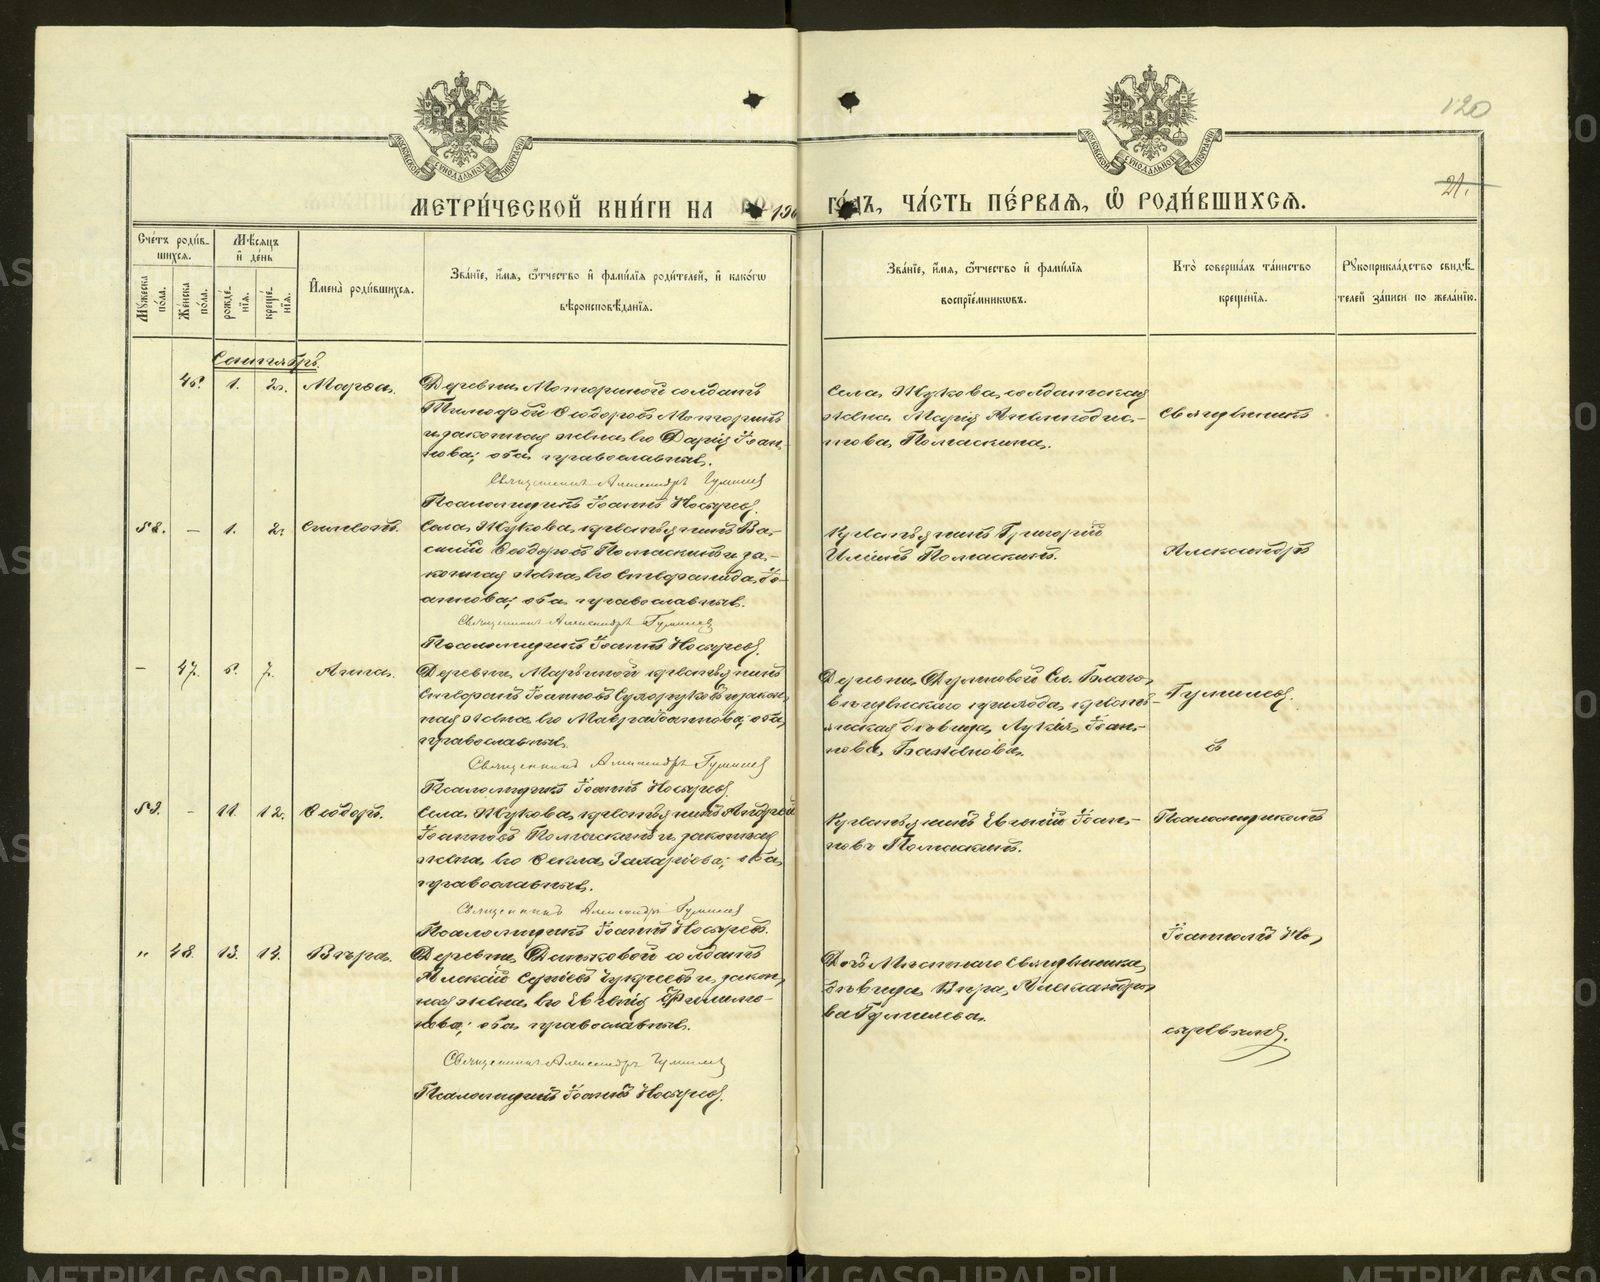 120
21.
МЕТРИ́ЧЕСКОЙ КНИ́ГИ НА 190 ГО́ДЪ, ЧА́СТЬ ПЕ́РВАЯ, Ѽ РОДИ́ВШИХСЯ.
Сче́тъ роди́в-
шихся.
Мѣ́сяцъ
и҆ де́нь
Мꙋ́жеска
по́ла.
Же́нска
по́ла.
рожде́-
нїѧ.
креще́-
нїѧ.
И҆мена̀ роди́вшихся.
Зва́нїе, и҆́мѧ, ѻ҆́тчество и҆ фами́лїѧ роди́телей, и҆ како́гѡ
вѣроисповѣ́данїѧ.
Зва́нїе, и҆́мѧ, ѻ҆́тчество и҆ фами́лїѧ
воспрїе́мниковъ.
Кто̀ соверша́лъ та́инство
креще́нїѧ.
Рꙋкоприкла́дство свидѣ́-
телей за́писи по жела́нїю.
Сентябрь.
46. 1. 2. Марѳа.
Деревни Моториной солдатъ
Тимофей Ѳеодоровъ Моторинъ
и законная жена его Дарія Іоан-
нова; оба православные.
Священникъ Александръ Гумилевъ
Псаломщикъ Іоаннъ Носыревъ.
Села Жукова, солдатская
жена Марія
Помаскина.
Священникъ
82. — 1. 2. Симеонъ.
Села Жукова, крестьянинъ Ва-
силій Ѳеодоровъ Помаскинъ и за-
конная жена его Стефанида Іо-
аннова; оба православные.
Священникъ Александръ Гумилевъ
Псаломщикъ Іоаннъ Носыревъ.
Крестьянинъ Григорій
Ильинъ Помаскинъ.
Александръ
— 47. 6. 7. Анна.
Деревни Марьиной крестьянинъ
Стефанъ Іоанновъ Сухоруковъ и закон-
ная жена его Мавра Іоаннова; оба
православные.
Священникъ Александръ Гумилевъ
Псаломщикъ Іоаннъ Носыревъ.
Деревни Ел. Благо-
вѣщенскаго прихода, кресть-
янская дѣвица, Іоан-
нова Баженова.
Гумилевъ.
съ
83. — 11. 12. Ѳеодоръ.
Села Жукова, крестьянинъ Андрей
Іоанновъ Помаскинъ и законная
жена его Ѳекла Захаріева; оба
православные.
Священникъ Александръ Гумилевъ
Псаломщикъ Іоаннъ Носыревъ.
Крестьянинъ Евгеній Іоан-
новъ Помаскинъ.
Псаломщикомъ
Іоанномъ Но-
„ 48. 13. 14. Вѣра.
Деревни Даньковой солдатъ
Алексій Сергіевъ и закон-
ная жена его Евгенія Филимо-
нова; оба православные.
Священникъ Александръ Гумилевъ
Псаломщикъ Іоаннъ Носыревъ.
Дочь Мѣстнаго Священника,
дѣвица Вѣра Александро-
ва Гумилева.
сыревымъ.